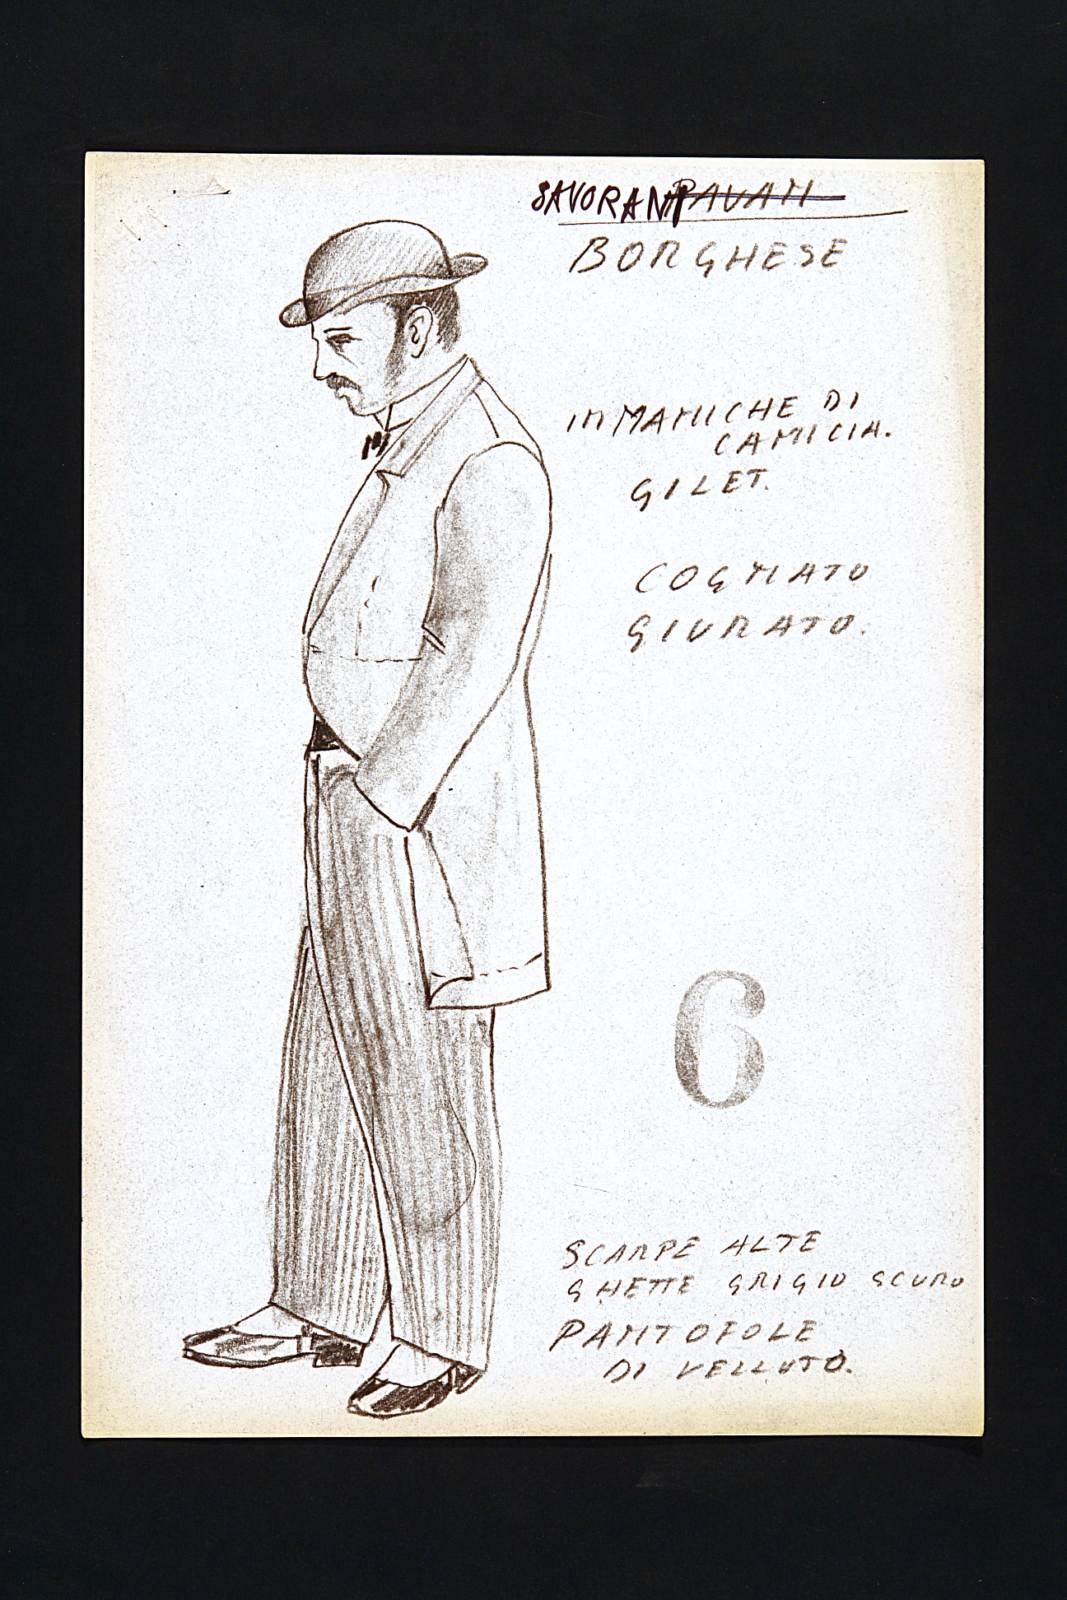 SAVORANI PAVANI
BORGHESE
IN MANICHE DI
CAMICIA.
GILET.
COGNATO
GIURATO.
6
SCARPE ALTE
GHETTE GRIGIO SCURO
PANTOFOLE
DI VELLUTO.